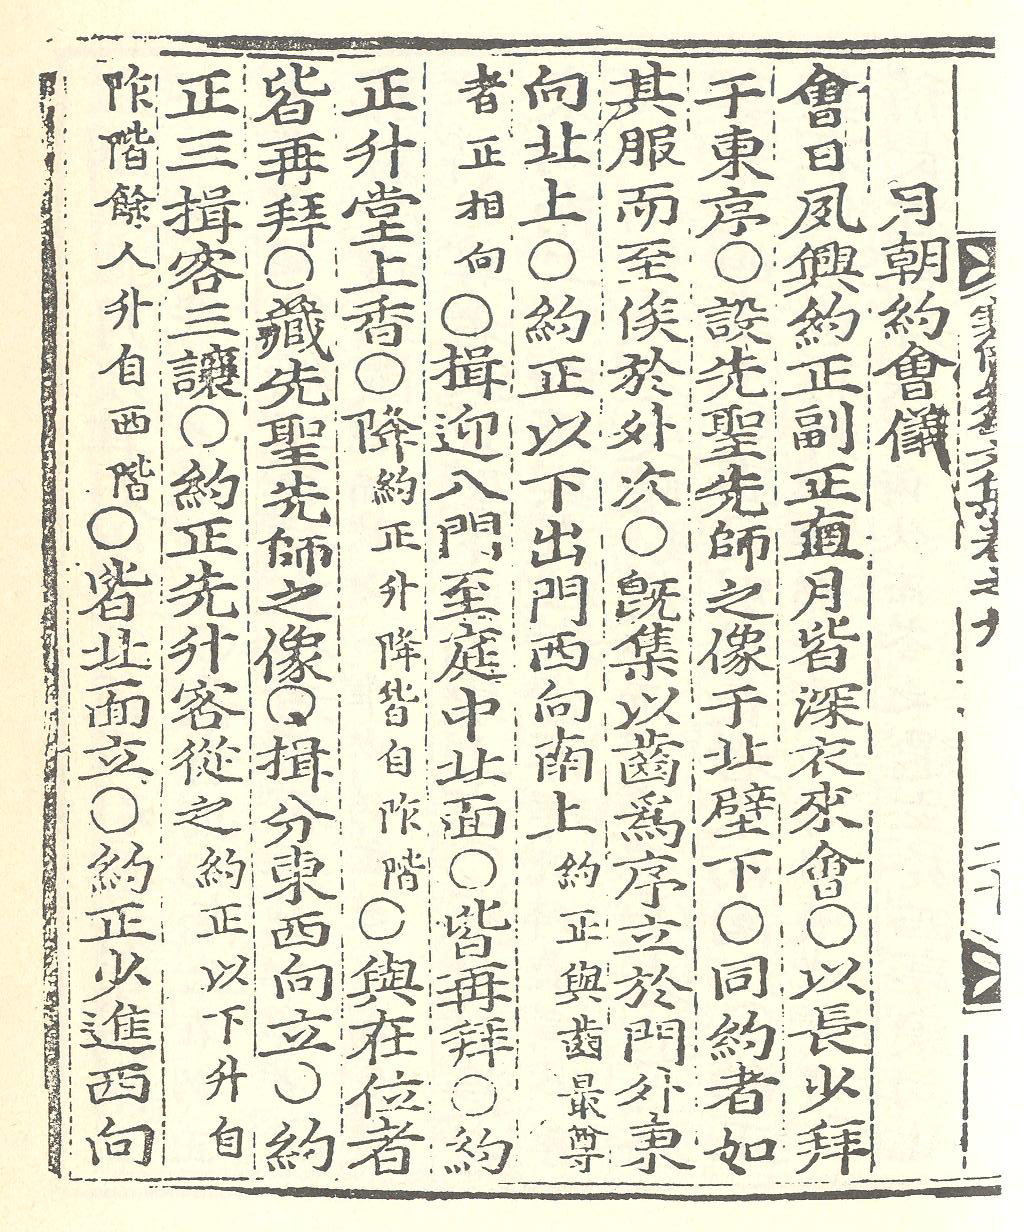 文集卷之九
月朝約會儀
會日夙興約正副正直月皆深衣來會○以長少拜
于東序○設先聖先師之像于北壁下○同約者如
其服而至俟於外次○旣集以齒爲序立於門外東
向北上○約正以下出門西向南上約正與齒最尊
者正相向○揖迎入門至庭中北面○皆再拜○約
正升堂上香○降約正升降皆自阼階○與在位者
皆再拜○藏先聖先師之像○揖分東西向立○約
正三揖客三讓○約正先升客從之約正以下升自
阼階餘人升自西階○皆北面立○約正少進西向